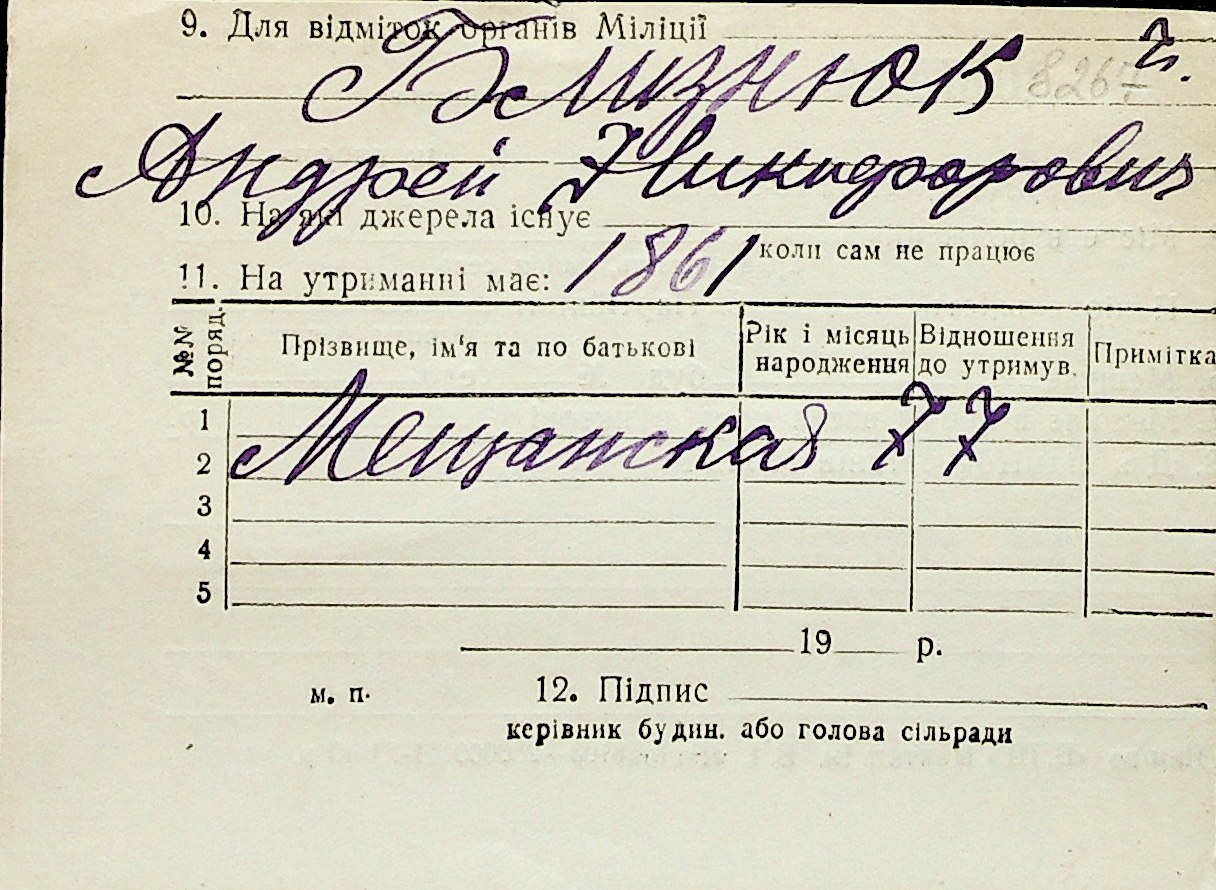 9. Для відміток органів Міліції
Близнюк 8267 г.
Андрей Никифорович
10. На які джерела існує
коли сам не працює
11. На утриманні має: 1861
№№ поряд. Прізвище, ім'я та по батькові Рік і місяць народження Відношення до утримув. Примітка
1
2 Мещанская 77
3
4
5
19 р.
м. п. 12. Підпис
керівник будин. або голова сільради